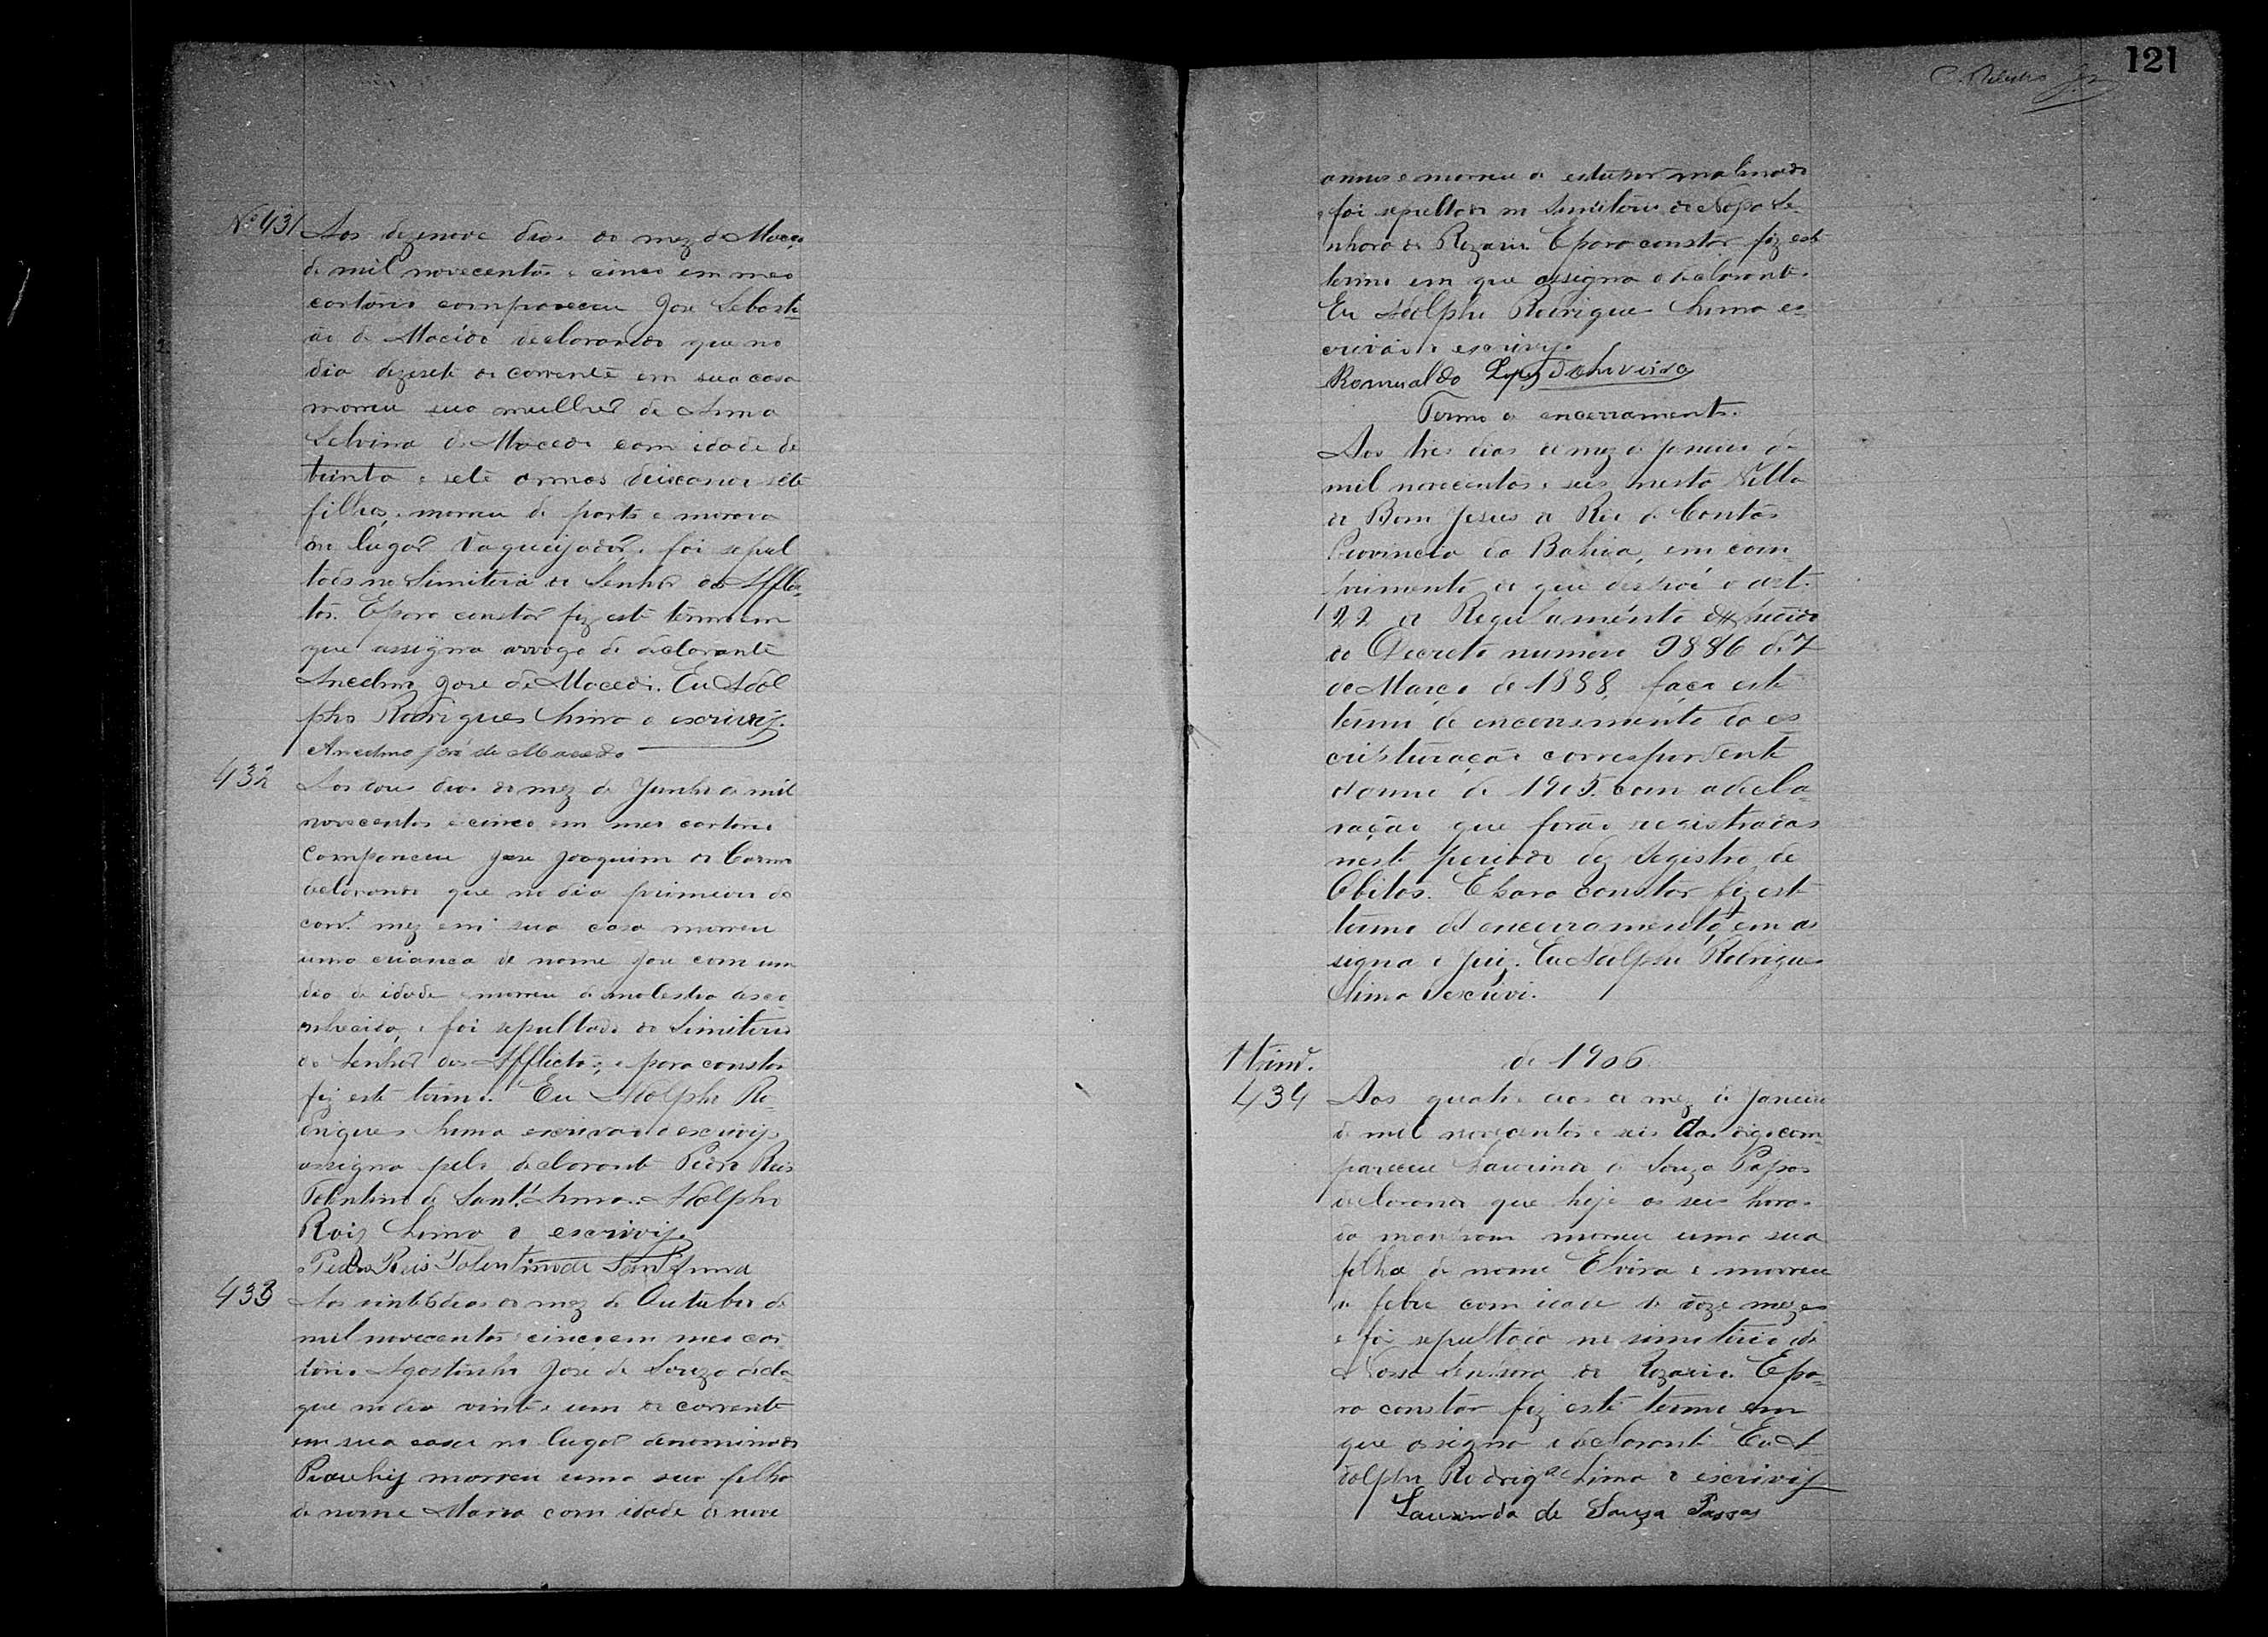 Nº 431 Aos dezenove dias do mez de Março
de mil novecentos e cinco em meo
cartorio compareceu Jose Sebasti-
ão de Macedo declarando que no
dia dezesete do corrente em sua casa
morreu sua mulher de
de Macedo com idade de
trinta e sete annos deixando sete
filhos, morreu de parto e morava
no lugar Vaqueijador, foi sepul
tada no Simiterio do Senhor dos Afflic-
tos. E para constar fiz este termo em
que assigna arrogo do declarante
Ancelmo Jose de Macedo. Eu Adol
pho Rodrigues Lima o escrivij.
Ancelmo José de Macedo
432 Aos dous dias do mez de Junho de mil
novecentos e cinco em meu cartorio
compareceu Jose Joaquim do Carmo
declarando que no dia primeiro do
corre. mez em sua casa morreu
uma crianca de nome Jose com um
dia de idade morreu de molestia desco
nhecida, e foi sepultado no Simiterio
do Senhor dos Afflictos; e para constar
fiz este termo. Eu Adolpho Ro-
drigues Lima escrivão o escrivij
assigna pelo declarante Pedro Reis
Tolentino de Sant'Anna. Adolpho
Roiz Lima o escrivij.
Pedro Reis Tolentino de Sant Anna
433 Aos vinte dias do mez de Outubro de
mil novecentos cinco em meu car
torio Agostinho Jose de Souza decla-
que no dia vinte e um do corrente
em sua casa no lugar denominado
Piauhij morreu uma sua filha
de nome Maria com idade de nove
121
annos e morreu de
e foi sepultada no Simiterio de Nossa Se-
nhora do Rozario. E para constar fiz este
termo em que assigna o declarante.
Eu Adolpho Rodrigues Lima es-
crivão o escrivij.
Romualdo Lopes
Termo de encerramento.
Aos tres dias do mez de Janeiro de
mil novecentos e seis nesta Villa
do Bom Jesus do Rio de Contas
Provincia da Bahia, em com
primento do que dispoi o art.
22 do Regulamento
do Decreto numero 9886 de 7
de Março de 1888, faço este
termo de encerramento da es
cristuração correspondente
o anno de 1905 com a decla-
ração que forão registradas
neste periodo dez registro de
Obitos. E para constar fiz este
termo de encerramento, em as
signa o juiz. Eu Adolpho Rodrigues
Lima o escrivi.
1 trim. de 1906
434 Aos quatro dias do mez de Janeiro
de mil novecentos e seis digo com-
pareceu Laurinda de Souza Passos
declarando que hoje as seis horas
da manhan morreu uma sua
filha de nome Elvira e morreu
de febre com idade de doze mezes
e foi sepultada no simiterio de
Nossa Senhora do Rozario. E pa-
ra constar fiz este termo em
que assigna o declarante Eu A
dolpho Rodrigs Lima o escrivij
Laurinda de Souza Passos